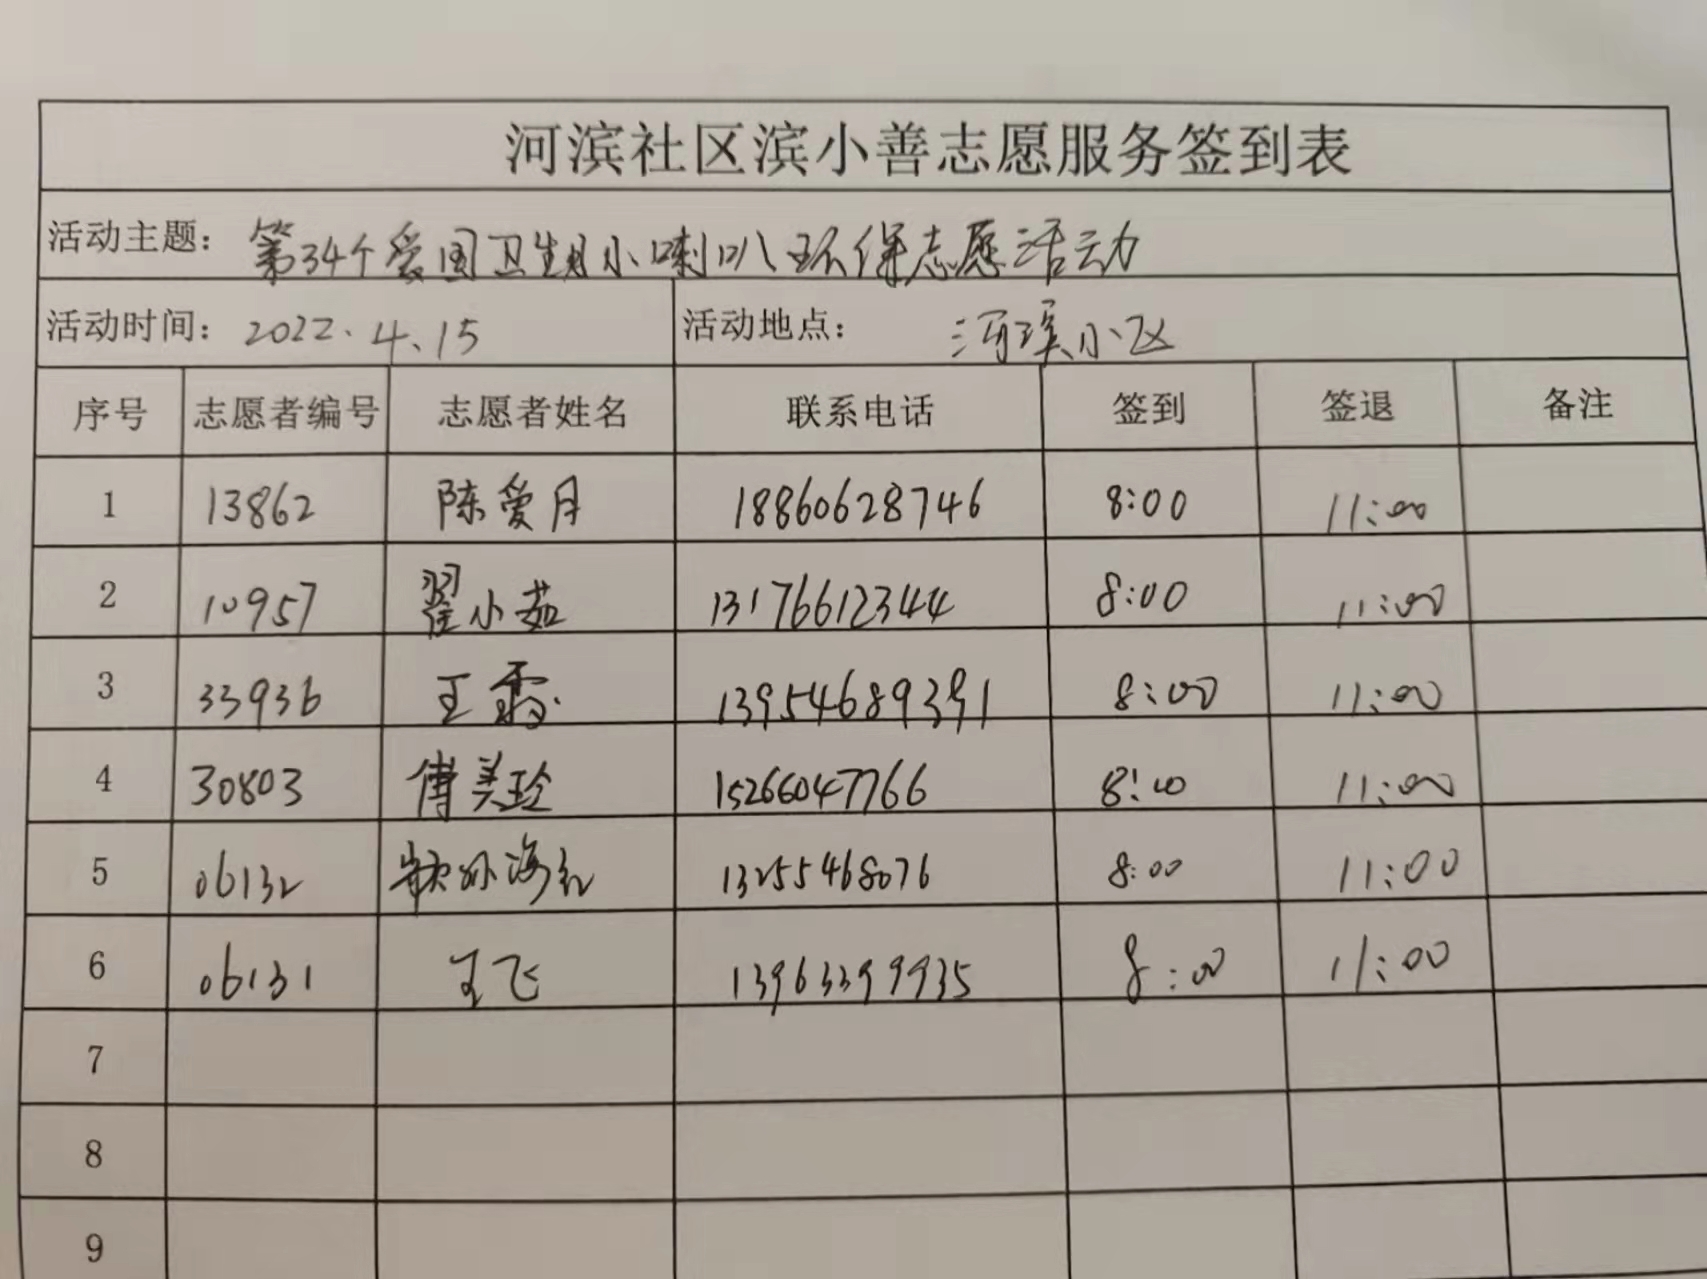 河滨社区滨小善志愿服务签到表
活动主题： 第34个爱国卫生月小喇叭环保志愿活动
活动时间： 2022.4.15 活动地点： 河滨小区
序号 志愿者编号 志愿者姓名 联系电话 签到 签退 备注
1 13862 陈爱月 18860628746 8:00 11:00
2 10957 翟小茹 13176612344 8:00 11:00
3 33936 王霞 13954689391 8:00 11:00
4 30803 傅美玲 15266047766 8:00 11:00
5 06132 海红 13255468076 8:00 11:00
6 06131 王飞 13963399935 8:00 11:00
7
8
9